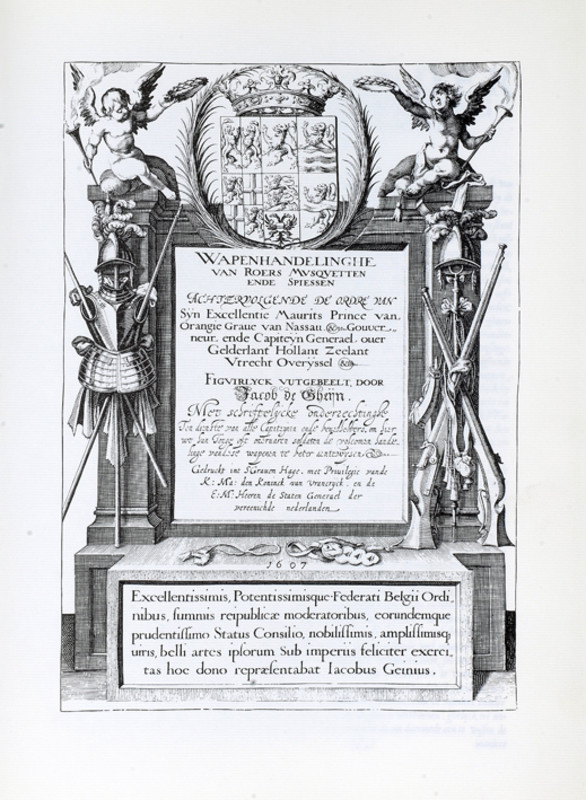 WAPENHANDELINGHE
VAN ROERS MVSQVETTEN
ENDE SPIESSEN
ACHTERVOLGENDE DE ORDRE VAN
Syn Excellentie Maurits Prince van
Orangie Graue van Nassau &c. Gouuer
neur ende Capiteyn Generael ouer
Gelderlant Hollant Zeelant
Vtrecht Overÿssel &c.
FIGVIRLYCK VUTGEBEELT, DOOR
Jacob de Gheÿn.
Met schriftelÿcke onderrechtinghe
Ten dienste van alle Capiteÿnen ende
soldaten de
wapenen te beter
Gedruckt ins GrauenHage, met Privilegie vande
K: Ma: den Koninck van Vrancrÿck, en de
E: M: Heeren de Staten Generael der
vereenichde nederlanden
1607
Excellentissimis, Potentissimisque Fœderati Belgii Ordi,
nibus, summis reipublicæ moderatoribus, eorundemque
prudentissimo Status Consilio, nobilissimis, amplissimisq;
uiris, belli artes ipsorum Sub imperiis feliciter exerci,
tas hoc dono repræsentabat Iacobus Geinius.